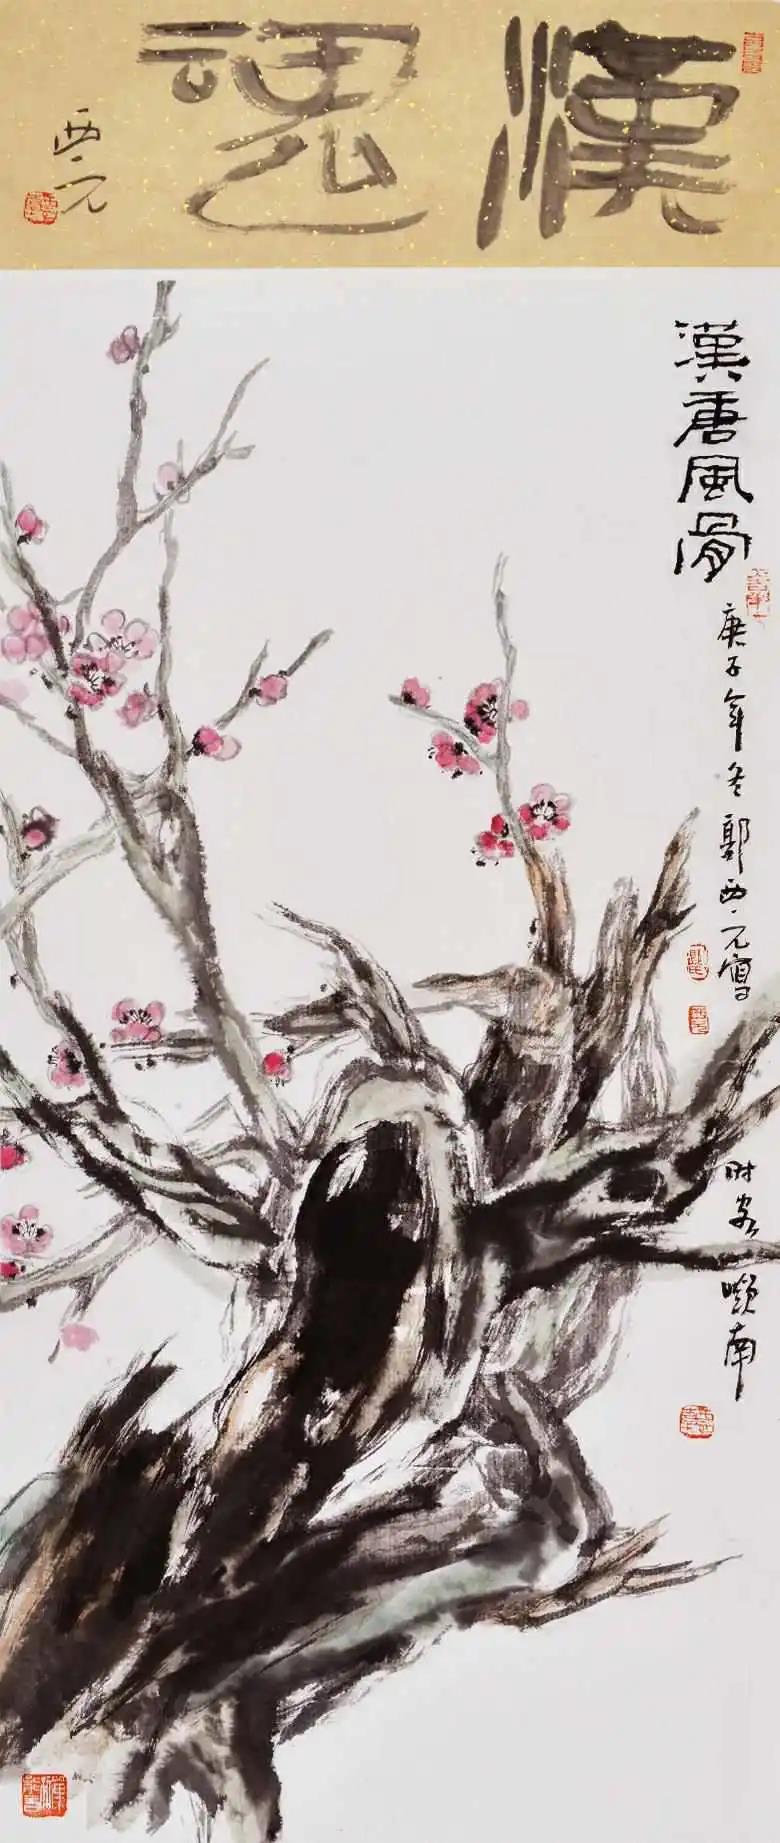 漢魂
西元
漢唐風骨
庚子年冬郭西元寫
时客嶺南